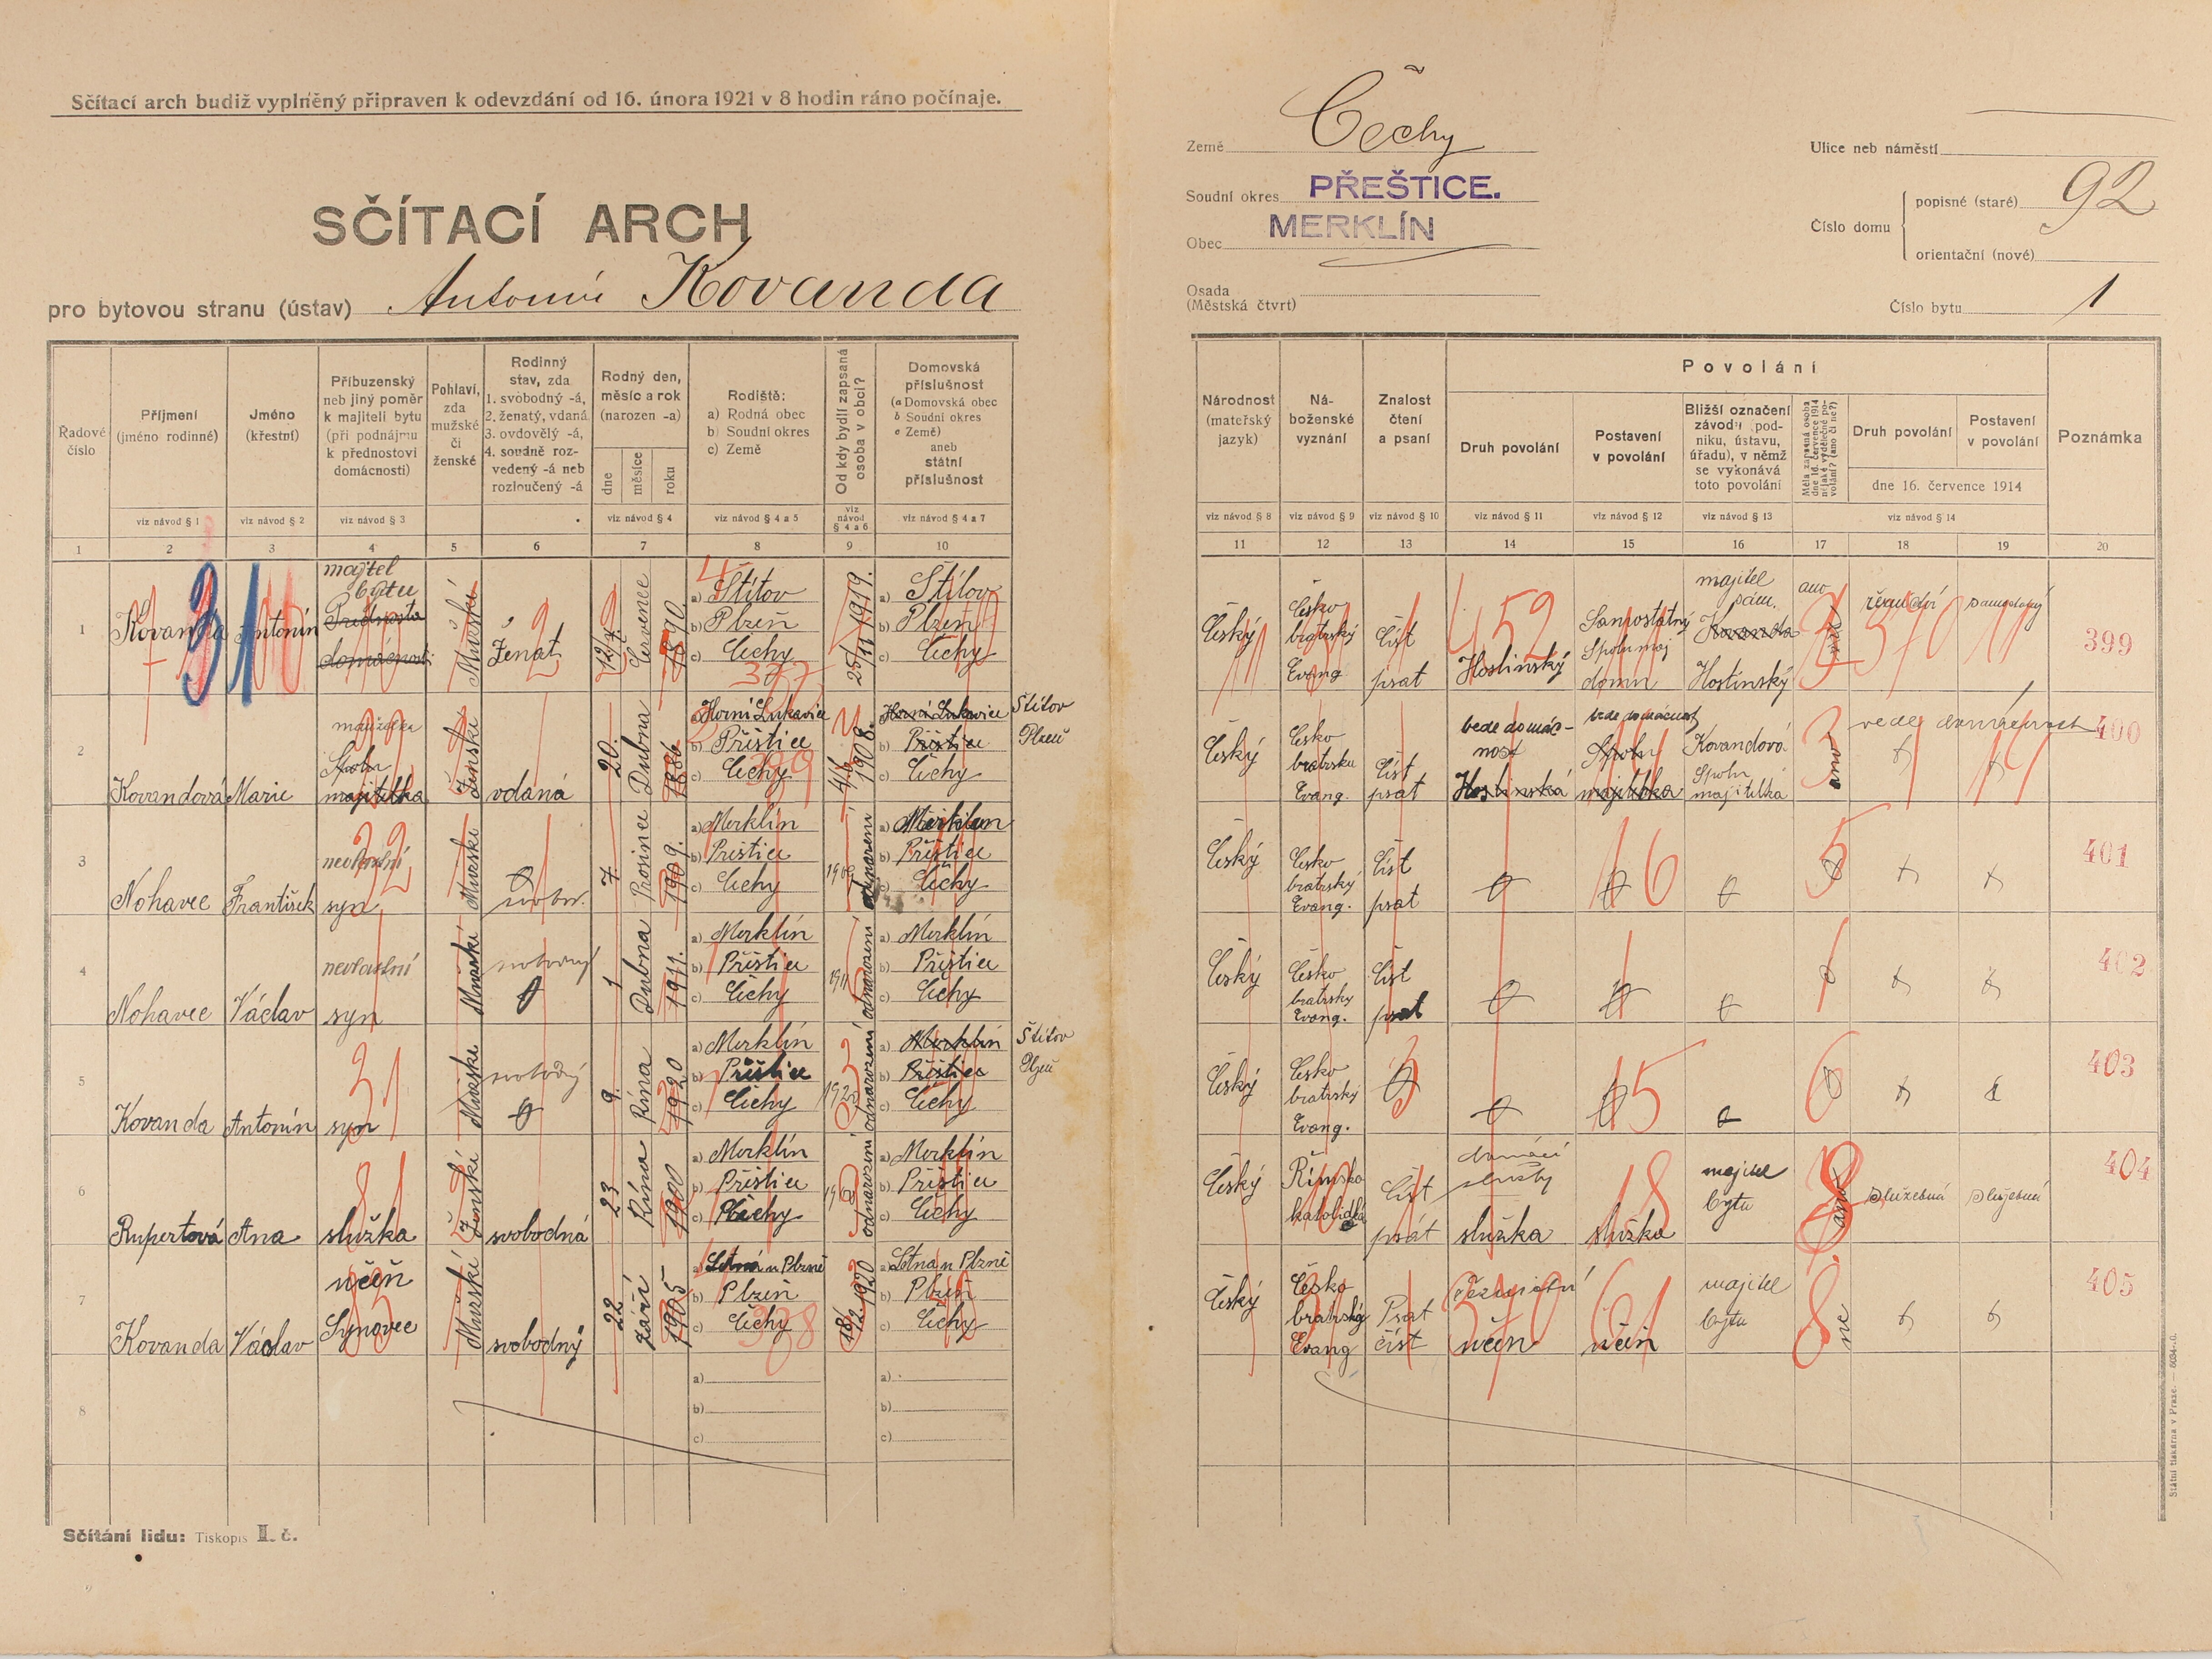 Sčítací arch budiž vyplněný připraven k odevzdání od 16. února 1921 v 8 hodin ráno počínaje.
SČÍTACÍ ARCH
pro bytovou stranu (ústav) Antonín Kovanda
Země Čechy
Soudní okres PŘEŠTICE.
Obec MERKLÍN
Osada
(Městská čtvrt)
Ulice neb náměstí
Číslo domu
popisné (staré) 92
orientační (nové)
Číslo bytu 1
Řadové číslo
Příjmení (jméno rodinné)
Jméno (křestní)
Příbuzenský neb jiný poměr k majiteli bytu (při podnájmu k přednostovi domácnosti)
Pohlaví, zda mužské či ženské
Rodinný stav, zda 1. svobodný -á, 2. ženatý, vdaná, 3. ovdovělý -á, 4. soudně rozvedený -á neb rozloučený -á
Rodný den, měsíc a rok (narozen -a)
dne
měsíce
roku
Rodiště:
a) Rodná obec
b) Soudní okres
c) Země
Od kdy bydlí zapsaná osoba v obci?
Domovská příslušnost
(a Domovská obec
b Soudní okres
c Země)
aneb státní příslušnost
viz návod § 1
viz návod § 2
viz návod § 3
viz návod § 4
viz návod § 4 a 5
viz návod § 4 a 6
viz návod § 4 a 7
1 2 3 4 5 6 7 8 9 10
Národnost (mateřský jazyk)
Náboženské vyznání
Znalost čtení a psaní
Povolání
Druh povolání
Postavení v povolání
Bližší označení závodu (podniku, ústavu, úřadu), v němž se vykonává toto povolání
Měla zapsaná osoba dne 16. července 1914 nějaké výdělečné povolání? (ano či ne?)
Druh povolání
Postavení v povolání
dne 16. července 1914
Poznámka
viz návod § 8
viz návod § 9
viz návod § 10
viz návod § 11
viz návod § 12
viz návod § 13
viz návod § 14
11 12 13 14 15 16 17 18 19 20
1 Kovanda Antonín
majtel bytu
Přednosta domácnosti
Mužské
Ženat
Července 1890
a) Štítov
b) Plzeň
c) Čechy
377
25/11 1919.
a) Štítov
b) Plzeň
c) Čechy
Český
Česko bratrský Evang
Číst psat
452
Hostinský
Samostatný
Spolumaj domu
majitel
Hostinský
ano
570
399
2 Kovandová Marie
manželka
Spolu majitelka
Ženské
vdaná
20. Dubna 1886
a) Horní Lukavice
b) Přištice
c) Čechy
399
1908.
a) Horní Lukavice
b) Přištice
c) Čechy
Štítov
Plzeň
Český
Česko bratrsku Evang.
Číst psat
vede domácnost
Hostinská
vede domácnost
Spolu majitelka
Kovandová
Spolu majitelka
3
ano
vede domácnost
400
3 Nohavec František
nevlastní syn
32
Mužské
7 Prosince 1909.
a) Merklín
b) Přištice
c) Čechy
1909
odnarození
a) Merklín
b) Přištice
c) Čechy
Český
Česko bratrský Evang.
Číst psat
16
5
401
4 Nohavec Václav
nevlastní syn
Mužské
svobodný
1 Dubna 1911.
a) Merklín
b) Přištice
c) Čechy
1911
odnarození
a) Merklín
b) Přištice
c) Čechy
Český
Česko bratrsky Evang.
Číst psat
402
5 Kovanda Antonín
syn
31
Mužské
svobodný
9. Října 1920
a) Merklín
b) Přištice
c) Čechy
1920
odnarození
a) Merklín
b) Přištice
c) Čechy
Štítov
Plzeň
Český
Česko bratrský Evang.
3
15
6
403
6 Rupertová Ana
služka
81
Ženské
svobodná
23 Října 1900
a) Merklín
b) Přištice
c) Čechy
odnarození
a) Merklín
b) Přištice
c) Čechy
Český
Římsko katolická
Číst psát
domácí služby
služka
služka
18
majitel bytu
8
ano
služebná
služebná
404
7 Kovanda Václav
učeň
Synovec
Mužské
svobodný
22 září 1905
a) Letná u Plzně
b) Plzeň
c) Čechy
1920
a) Letna u Plzně
b) Plzeň
c) Čechy
Český
Česko bratrský Evang
Psat číst
570
učeň
61
učeň
majitel bytu
8
ne
405
8
a)
b)
c)
a)
b)
c)
Sčítání lidu: Tiskopis II. č.
Státní tiskárna v Praze.